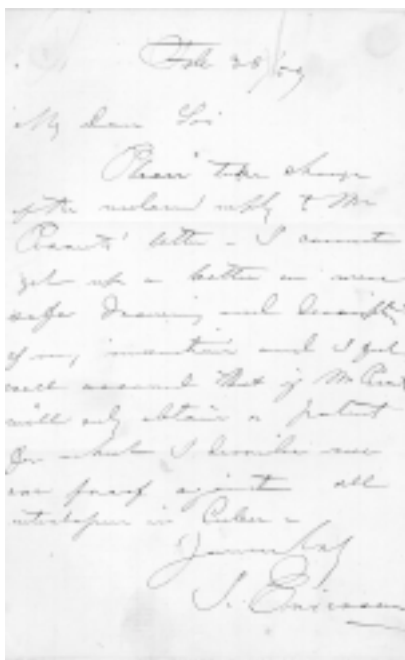 Feb 28/69
My dear Sir
Please take charge
of the enclosed reply to Mr
letter – I cannot
get up a better or more
safe drawing and description
of my invention and I feel
well assured that if Mr
will only obtain a patent
for what I describe we
are proof against all
interlopers in Cuba –
Yours truly
J. Ericsson